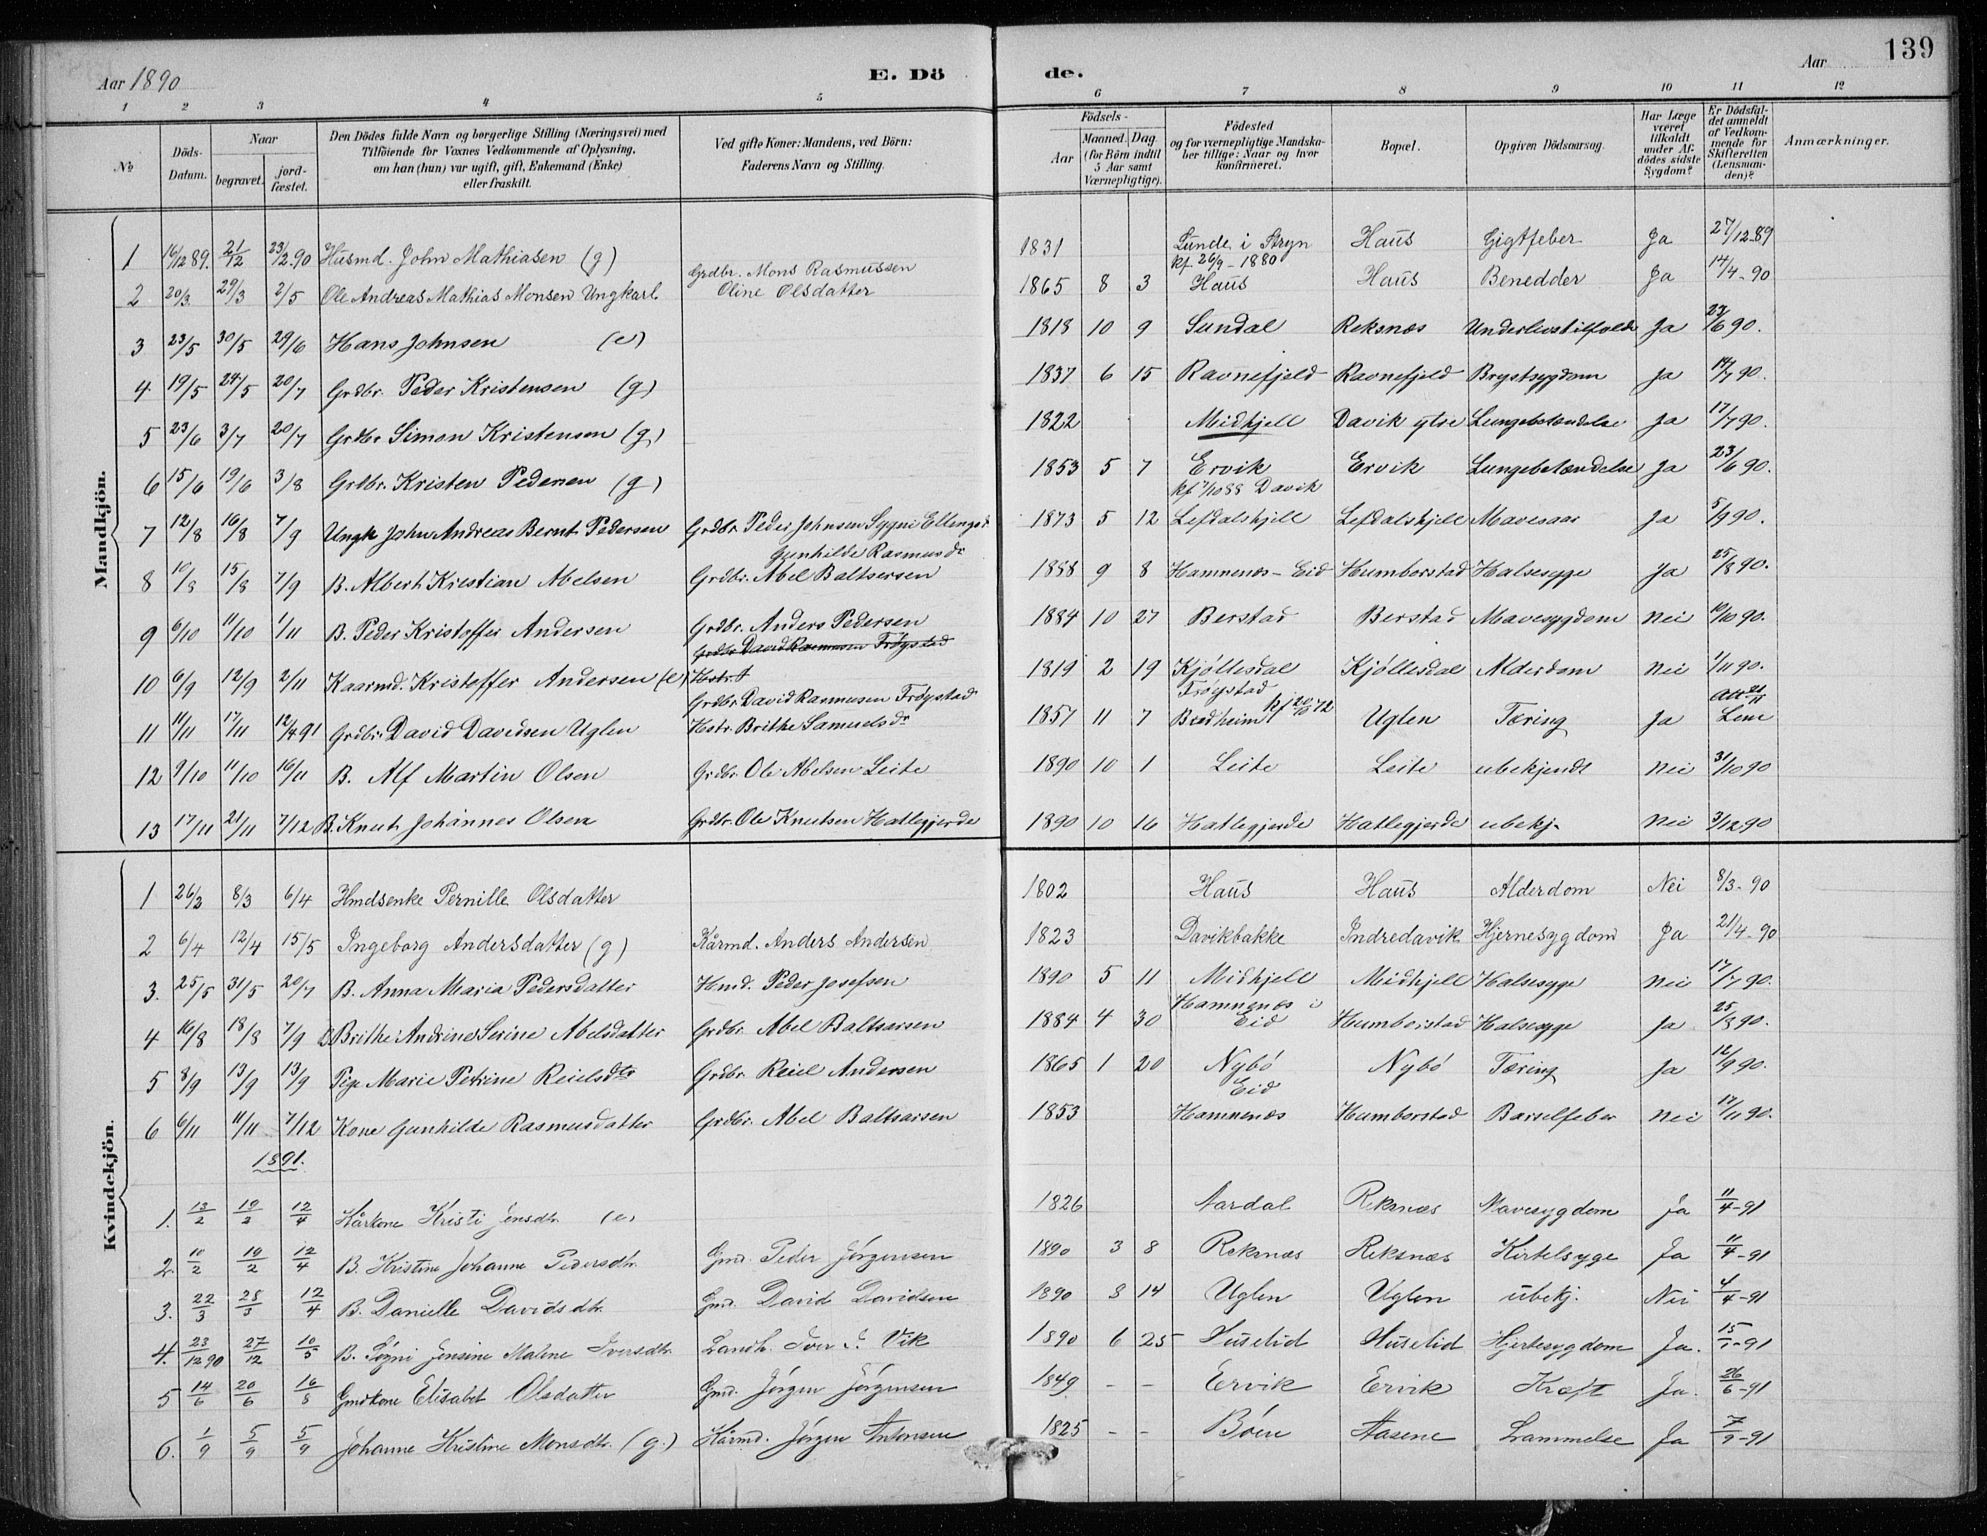 Aar 1890 E. Dö de. Aar 139
1 2 3 4 5 6 7 8 9 10 11 12
No Döds-Datum. Naar begravet. jord-fæstet. Den Dödes fulde Navn og borgerlige Stilling (Næringsvei) med Tilföiende for Voxnes Vedkommende af Oplysning, om han (hun) var ugift, gift, Enkemand (Enke) eller fraskilt. Ved gifte Koner: Mandens, ved Börn: Faderens Navn og Stilling. Födsels- Aar Maaned. Dag (for Börn indtil 5 Aar samt Værnepligtige). Födested og for værnepligtige Mandska-ber tillige: Naar og hvor konfirmeret. Bopæl. Opgiven Dödsaarsag. Har Læge været tilkaldt under Af-dödes sidste Sygdom? Er Dödsfal-det anmeldt af Vedkom-mende for Skifteretten (Lensman-den)? Anmærkninger.
Mandkjön.
1 16/12 89. 21/12 23/2.90 Husmd. John Mathiasen (g) 1831 Lunde i Stryn Haus Gigtfeber Ja 27/12-89
2 20/3 29/3 2/5 Ole Andreas Mathias Monsen Ungkarl Grdbr. Mons Rasmussen Oline Olsdatter 1865 8 3 kf. 26/9-1880 Haus Haus Benedder Ja 14/4-90
3 23/5 30/5 29/6 Hans Johnsen (e) 1818 10 9 Sundal Reksnæs Underlivstilfælde Ja 23/6 90.
4 19/5 24/5 20/7 Grdbr. Peder Kristensen (g) 1837 6 15 Ravnefjeld Ravnefjeld Brystsygdom Ja 14/7 90.
5 23/6 3/7 20/7 Grdbr Simon Kristensen (g) 1822 Midhjell Davik ytre Lungebetændelse Ja 17/7 90.
6 15/6 19/6 3/8 Grdbr. Kristen Pedersen (g) 1853 5 7 Ervik Ervik Lungebetændelse Ja 23/6 90.
7 12/8 16/8 7/9 Ungk John Andreas Bernt Pedersen Grdbr. Peder Johnsen Sygni Ellingsd. 1873 5 12 kf 7/10 88 Davik Lefdalshjell Lefdalshjell Mavesaar Ja 5/9 90.
8 10/8 15/8 7/9 B. Albert Kristian Abelsen Gunhilde Rasmusdr Grdbr. Abel Baltsersen 1888 9 8 Hamnenæs - Eid Humborstad Halsesyge Ja 25/8 90.
9 6/10 11/10 1/11 B. Peder Kristoffer Andersen Grdbr. Anders Pedersen 1884 10 27 Berstad Berstad Mavesygdom Nei 10/10 90.
10 6/9 12/9 2/11 Kaarmd. Kristoffer Andersen (e) Grdbr David Rasmusen Frøystad Hstr. 1819 2 19 Kjøllesdal Kjøllesdal Alderdom Nei 1/11 90.
11 11/11 17/11 12/4 91 Grdbr. David Davidsen Uglen Grdbr. David Rasmusen Frøystad Hstr. Brithe Samuelsdr 1857 11 7 Frøystad Bredheim Uglen Tæring Ja Len
12 9/10 11/10 16/11 B. Alf Martin Olsen Grdbr. Ole Abelsen Leite 1890 10 1 Leite Leite ubekjendt Nei 31/10 90
13 17/11 21/11 7/12 B. Knut Johannes Olsen Grdbr. Ole Knutsen Hatlegjerde 1890 10 16 Hatlegjerde Hatlegjerde ubekj. Nei 3/12 90
Kvindekjön.
1 26/2 8/3 6/4 Hmdsenke Pernille Olsdatter 1802 Haus Haus Alderdom Nei 8/3-90
2 6/4 12/4 15/5 Ingeborg Andersdatter (g) Kårmd. Anders Andersen 1823 Davikbakke Indredavik Hjernesygdom Ja 21/4-90
3. 25/5 31/5 20/7 B. Anna Maria Pedersdatter Hmd. Peder Josefsen 1890 5 11 Midhjell Midhjell Halsesyge Nei 17/7 90.
4 16/8 18/8 7/9 B Brithe Andrine Serine Abelsdatter Grdbr. Abel Baltsarsen 1884 4 30 Hamnenæs i Eid Humborstad Halsesyge Ja 25/8 90.
5 8/9 13/9 13/9 Pige Marie Petrine Reielsdtr Grdbr. Reiel Andersen 1865 1 20 Nybö Nybö Tæring Ja 12/9 90.
6 6/11 11/11 7/12 Kone Gunhilde Rasmusdatter Grdbr. Abel Baltsarsen 1853 Eid Hamnenæs Humborstad Barselfeber Nei 17/11 90.
1891.
1. 13/2 19/2 12/4 Kårkone Kristi Jensdtr. (e) 1826 Aardal Reksnæs Mavesygdom Ja 11/4-91
2. 10/2 19/2 12/4 B. Kristine Johanne Pedersdtr. Gmd. Peder Jørgensen 1890 3 8 Reksnæs Reksnæs Kirtelsyge Ja 11/4-91
3. 22/3 28/3 12/4 B. Danielle Davidsdtr. Gmd. David Davidsen 1890 8 14 Uglen Uglen ubekj. Nei 4/4-91
4. 23/12 90 27/12 10/5 B. Søgni Jensine Malene Iversdtr. Landh. Iver J. Vik 1890 6 25 Huselid Huselid Hjertesygdom Ja. 15/1-91
5 14/6 20/6 16/8 Gmdkone Elisabet Olsdatter Gmd. Jørgen Jørgensen 1849 - - Ervik Ervik Kræft Ja. 26/6-91
6. 1/9 5/9 5/9 Johanne Kristine Monsdtr. (g.) Kårmd. Jørgen Antonsen 1825 - - Bøen Aasene Lammelse Ja 7/9-91